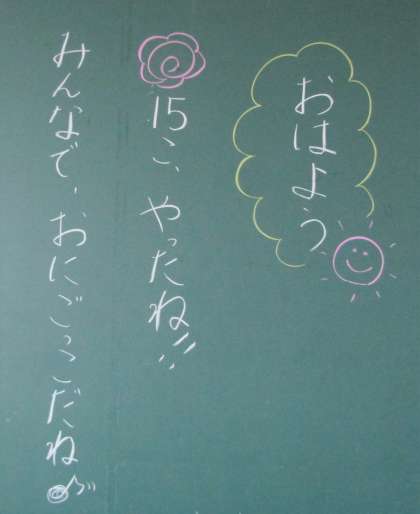 おはよう
15こ、やったね!!
みんなで、おにごっこだね